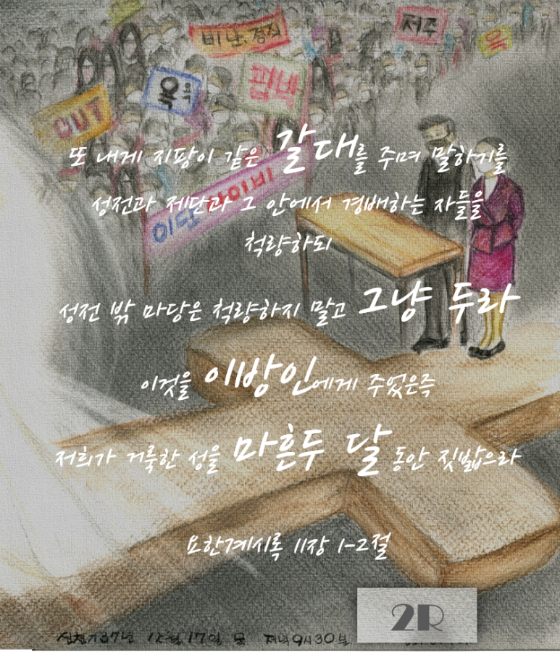 비난, 정죄
저주
욕
욕
핍박
OUT
이단 사이비
또 내게 지팡이 같은 갈대를 주며 말하기를
성전과 제단과 그 안에서 경배하는 자들을
척량하되
성전 밖 마당은 척량하지 말고 그냥 두라
이것을 이방인에게 주었은즉
저희가 거룩한 성을 마흔두 달 동안 짓밟으리라
요한계시록 11장 1-2절
2R
신천기37년 12월 17일 저녁9시30분